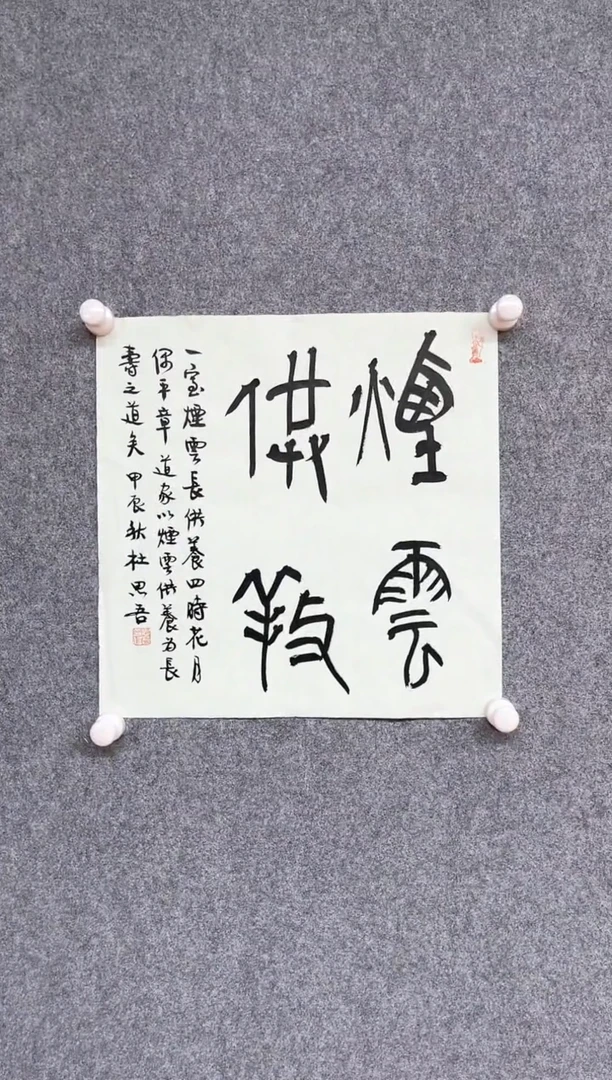 煙雲
供養
一室煙雲長供養四時花月
偶平章 道家以煙雲供養為長
壽之道矣 甲辰秋杜思吾